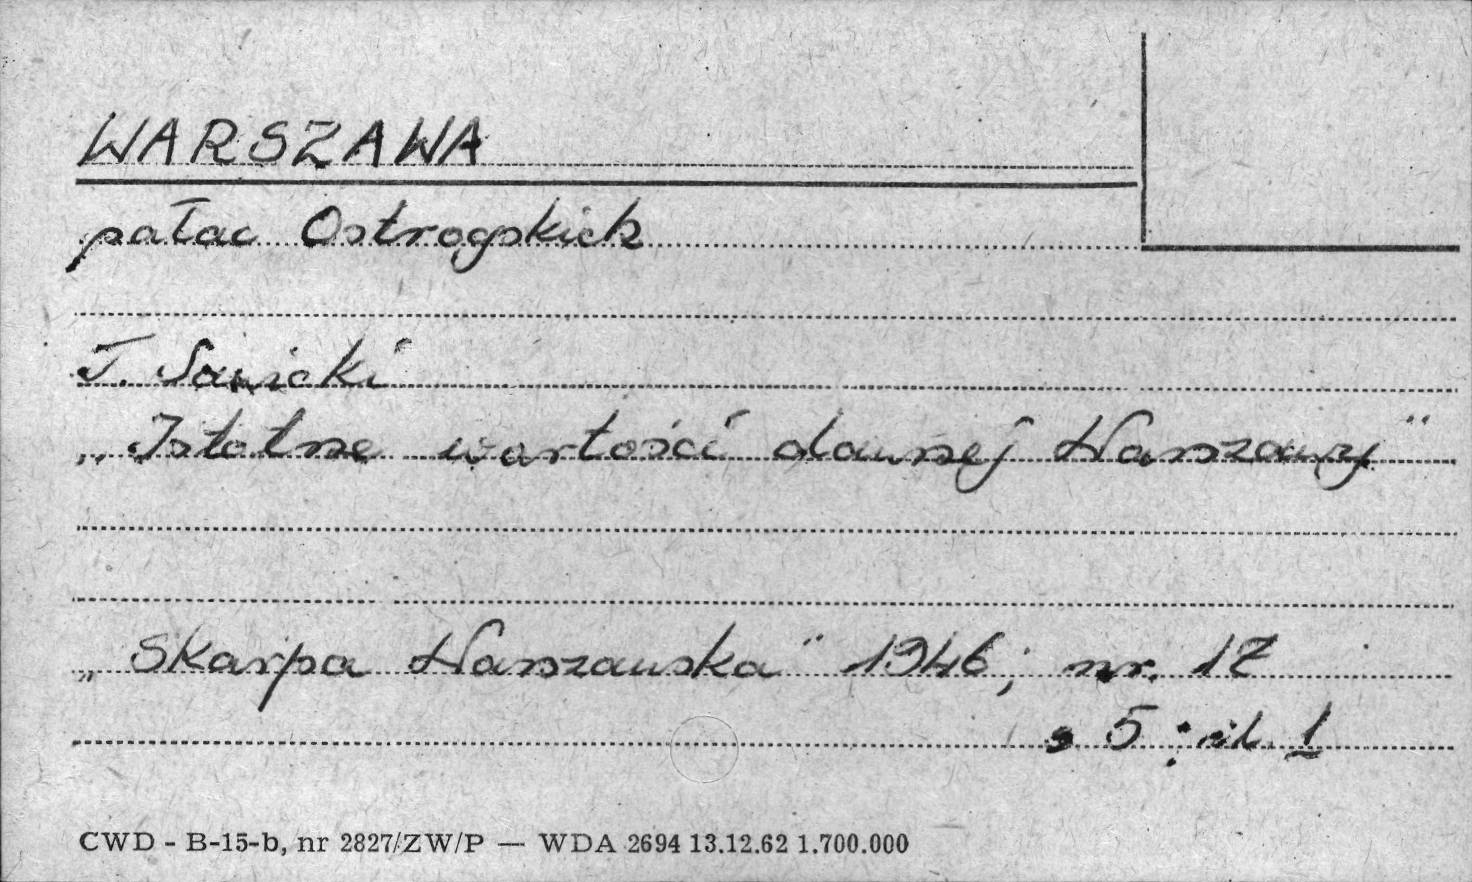 WARSZAWA
pałac Ostrogskich
T. Sawicki
„Istotne wartości dawnej Warszawy"
„Skarpa Warszawska" 1946, nr. 17
s 5; il. 1
CWD - B-15-b, nr 2827/ZW/P — WDA 2694 13.12.62 1.700.000